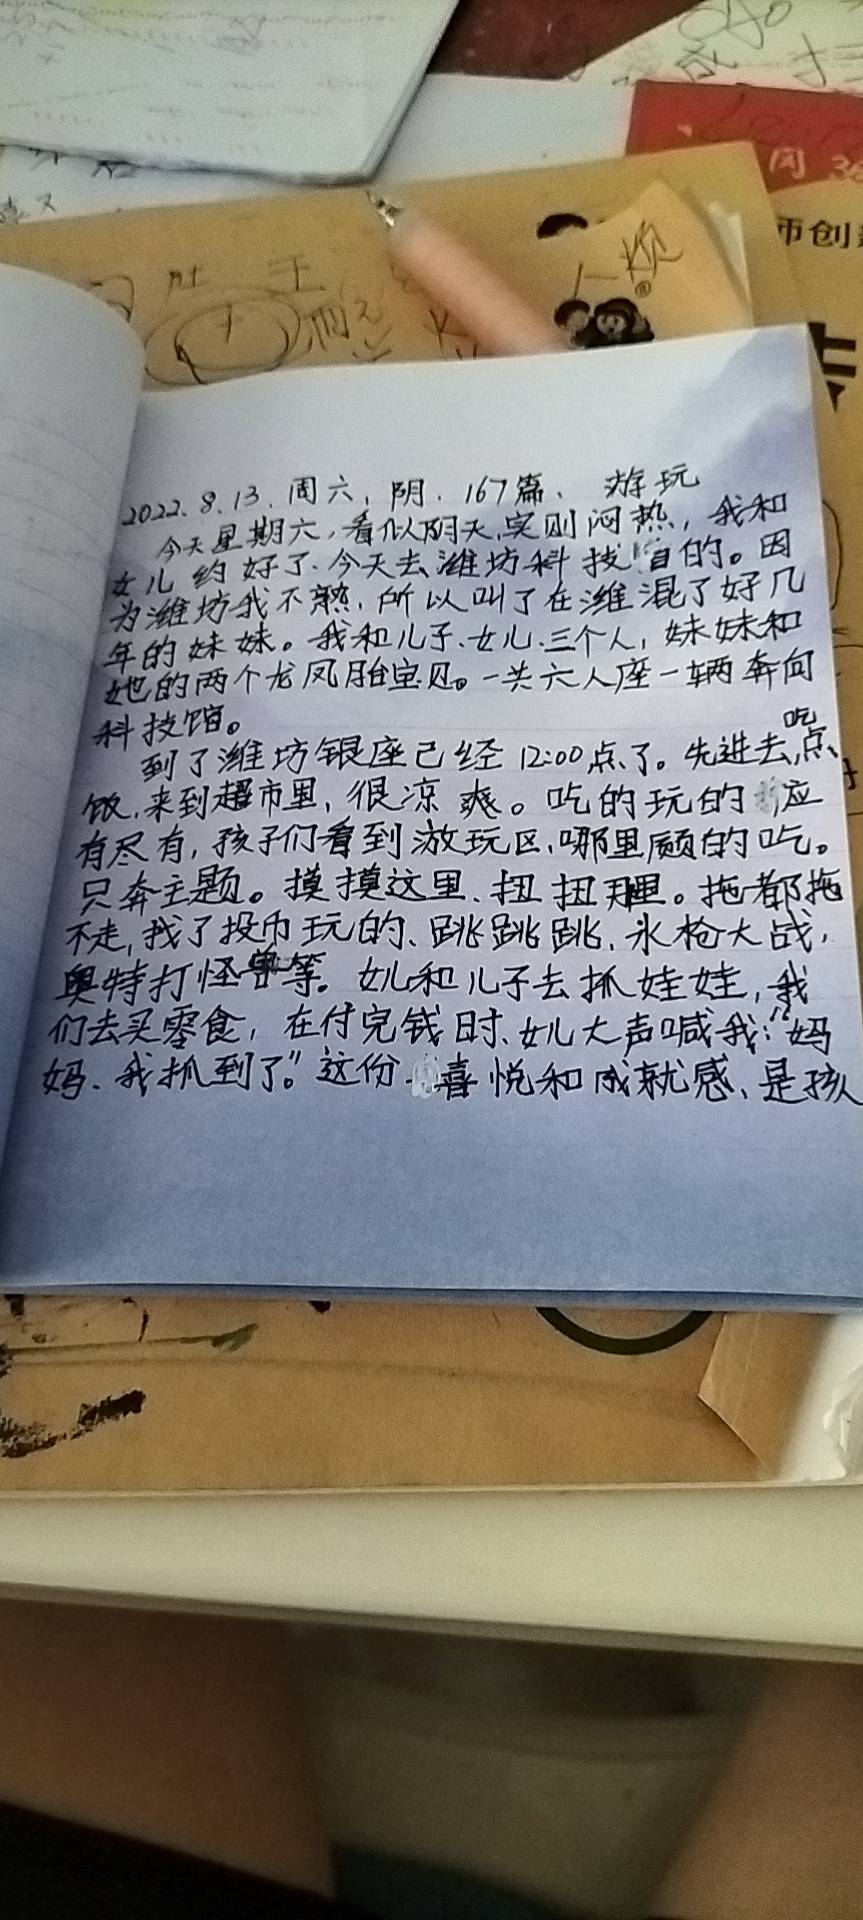 2022.8.13.周六,阴.167篇、游玩
今天星期六,看似阴天,实则闷热,我和
女儿约好了.今天去潍坊科技馆的。因
为潍坊我不熟,所以叫了在潍混了好几
年的妹妹。我和儿子、女儿、三个人,妹妹和
她的两个龙凤胎宝贝。一共六人座一辆奔向
科技馆。
到了潍坊银座已经12:00点了。先进去吃点
饭,来到超市里,很凉爽。吃的玩的应
有尽有,孩子们看到游玩区,哪里顾的吃。
只奔主题。摸摸这里、扭扭那里。拖都拖
不走,找了投币玩的、跳跳跳,水枪大战,
奥特打怪兽等。女儿和儿子去抓娃娃,我
们去买零食,在付完钱时、女儿大声喊我:“妈
妈、我抓到了。”这份喜悦和成就感、是孩
师创